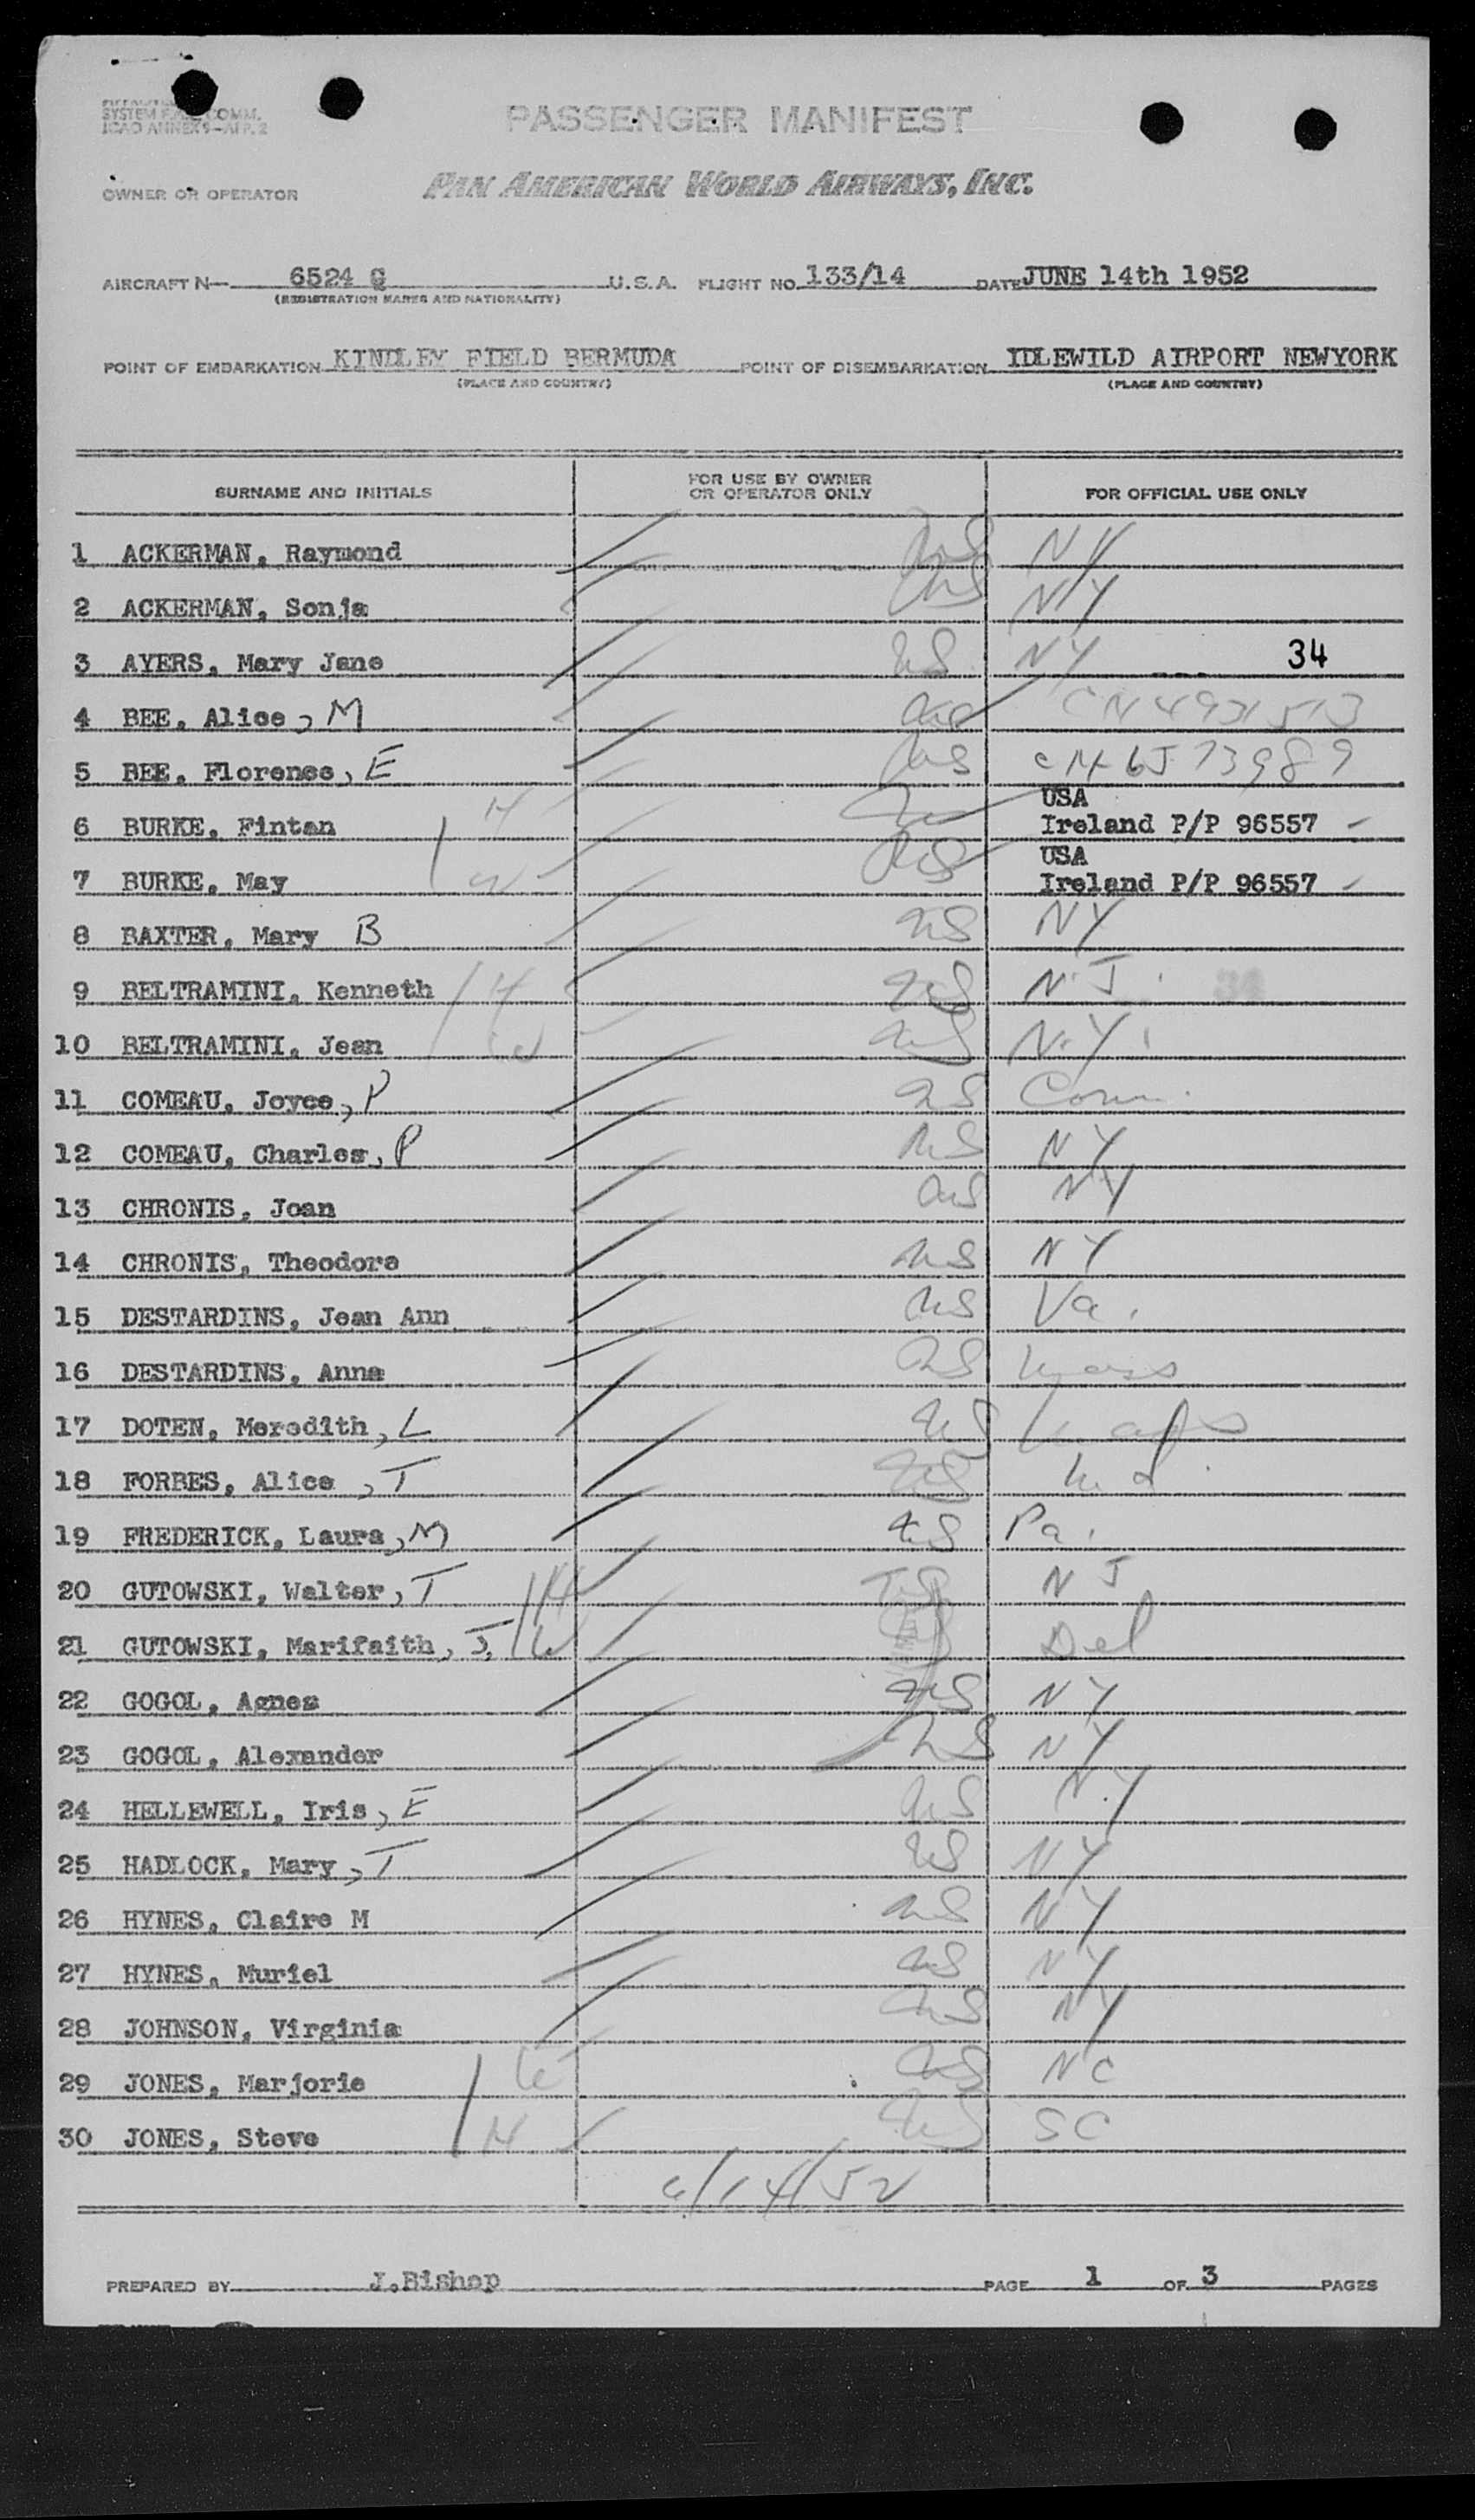 SYSTEM F.A.L. COMM.
ICAO ANNEX 9—APP. 2
PASSENGER MANIFEST
OWNER OR OPERATOR PAN AMERICAN WORLD AIRWAYS, INC.
AIRCRAFT N— 6524 G U.S.A. FLIGHT NO. 133/14 DATE JUNE 14th 1952
(REGISTRATION MARKS AND NATIONALITY)
POINT OF EMBARKATION KINDLEY FIELD BERMUDA POINT OF DISEMBARKATION IDLEWILD AIRPORT NEWYORK
(PLACE AND COUNTRY) (PLACE AND COUNTRY)
SURNAME AND INITIALS FOR USE BY OWNER OR OPERATOR ONLY FOR OFFICIAL USE ONLY
1 ACKERMAN, Raymond US NY
2 ACKERMAN, Sonja US NY
3 AYERS, Mary Jane US NY 34
4 BEE, Alice, M
5 BEE, Florence, E US
USA
6 BURKE, Fintan Ireland P/P 96557
USA
7 BURKE, May US Ireland P/P 96557
8 BAXTER, Mary B US NY
9 BELTRAMINI, Kenneth H US N.J.
10 BELTRAMINI, Jean W US N.Y.
11 COMEAU, Joyce, P US Conn.
12 COMEAU, Charles, P US NY
13 CHRONIS, Joan US NY
14 CHRONIS, Theodora US NY
15 DESTARDINS, Jean Ann US Va.
16 DESTARDINS, Anna US Mass
17 DOTEN, Meredith, L US Mass
18 FORBES, Alice, T US Md.
19 FREDERICK, Laura, M US Pa.
20 GUTOWSKI, Walter, T H US NJ
21 GUTOWSKI, Marifaith, J, W Del
22 GOGOL, Agnes US NY
23 GOGOL, Alexander US NY
24 HELLEWELL, Iris, E US N.Y
25 HADLOCK, Mary, T US NY
26 HYNES, Claire M US NY
27 HYNES, Muriel US NY
28 JOHNSON, Virginia US NY
29 JONES, Marjorie W US NC
30 JONES, Steve H US SC
6/14/52
PREPARED BY J.Bishop PAGE 1 OF 3 PAGES